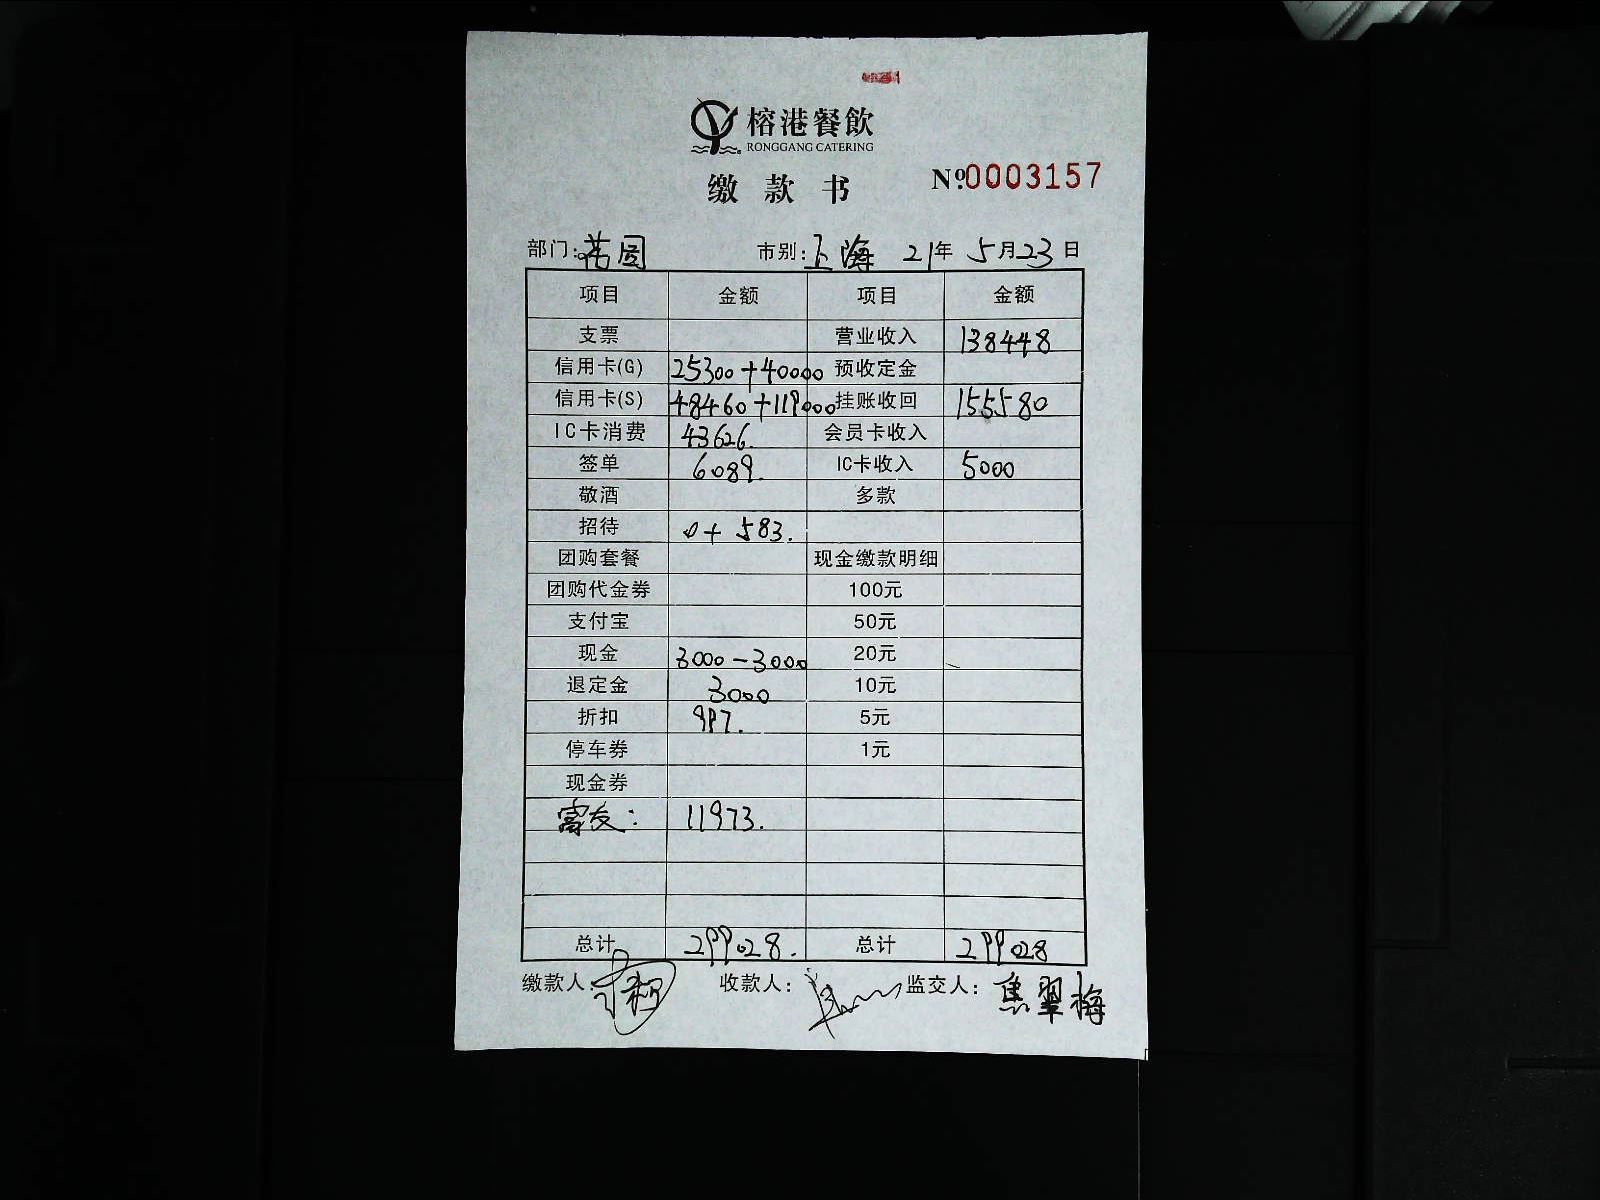 榕港餐飲
RONGGANG CATERING
缴款书 №0003157
部门: 茗园 市别: 上海 21年 5月23日
项目 金额 项目 金额
支票 营业收入 138448
信用卡(G) 25300+40000 预收定金
信用卡(S) 48460+119000 挂账收回 155580
IC卡消费 43626. 会员卡收入
签单 6089. IC卡收入 5000
敬酒 多款
招待 0+583.
团购套餐 现金缴款明细
团购代金券 100元
支付宝 50元
现金 3000-3000 20元
退定金 3000 10元
折扣 997. 5元
停车券 1元
现金券
11973.
总计 299028. 总计 299028
缴款人: 收款人: 监交人: 焦翠梅